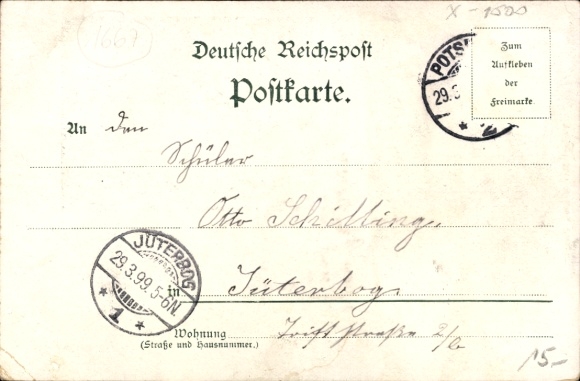 X - 1500
1667
Deutsche Reichspost
Postkarte.
Zum
Aufkleben
der
Freimarke
POTS
29.3
2
An den
Schüler
Otto Schilling.
JÜTERBOG
29.3.99. 5-6N.
1
in Jüterbog
Wohnung Triftstraße
(Straße und Hausnummer.)
15-